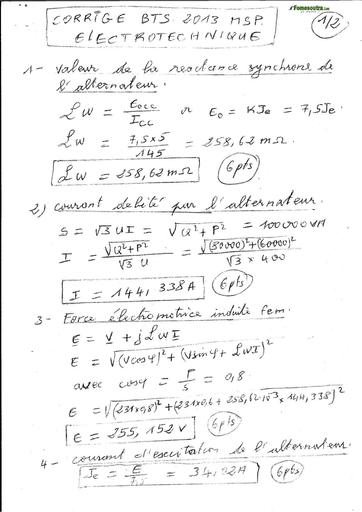 Fomesoutra.com
CORRIGE BTS 2013 MSP
ELECTROTECHNIQUE
1/2
1- Valeur de la reactance synchrone de
l'alternateur.
Lw = Eocc / Icc or E0 = KJe = 7,5Je
Lw = 7,5x5 / 145 = 258,62 mΩ.
Lw = 258,62 mΩ
6pts
2) courant debité par l'alternateur.
S = √3 UI = √Q²+P² = 100000VA
I = √Q²+P² / √3 U = √(80000)²+(60000)² / √3 x 400
I = 144,338A
6pts
3- Force électromotrice induite fem.
E = V + jLwI
E = √(Vcosφ)²+(Vsinφ + LwI)²
avec cosφ = P/S = 0,8
E = √(231x0,8)²+(231x0,6 + 258,62.10⁻³ x 144,338)²
E = 255,152V
6pts
4- courant d'excitation de l'alternateur.
Je = E / 7,5 = 34,02A
6pts